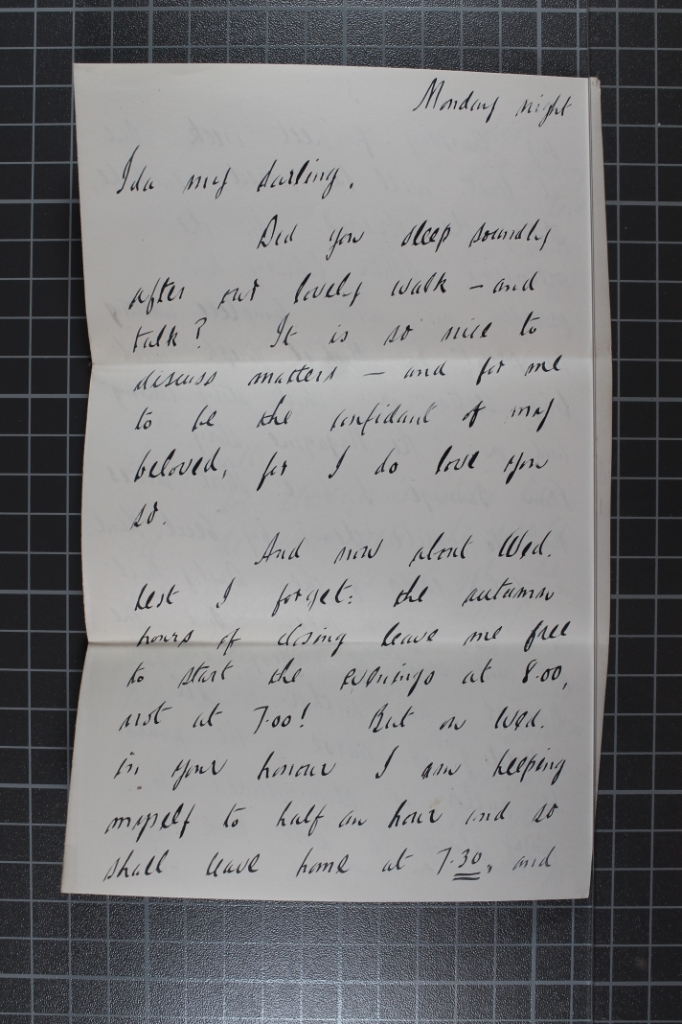 Monday night
Ida my darling.
Did you sleep soundly
after our lovely walk – and
talk? It is so nice to
discuss matters – and for me
to be the confidant of my
beloved, for I do love you
so.
And now about Wed.
lest I forget: the autumn
hours of closing leave me free
to start the evenings at 8.00,
not at 7.00! But on Wed.
in your honour I am keeping
myself to half an hour and so
shall leave home at 7.30, and